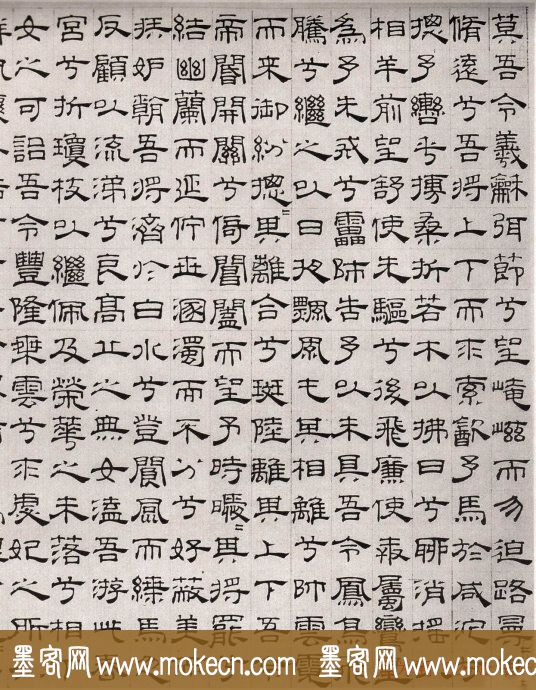 莫吾令羲龢弭節兮望崦嵫而勿迫路曼
脩遠兮吾將上下而求索歙予馬於咸池
摠予轡乎摶桑折若木以拂日兮聊消搖
相羊前望舒使先驅兮後飛廉使奔屬鸞皇
為予先戒兮靁師告予以未具吾令鳳鳥
騰兮繼之以日夜飄風屯其相離兮帥雲霓
而来御紛摠=其離合兮斑陸離其上下吾
帝閽開關兮倚閶闔而望予時曖=其將罷兮
結幽蘭而延佇世溷濁而不分兮好蔽美
嫉妒朝吾將濟於白水兮登閬風而緤馬
反顧以流涕兮哀高丘之無女溘吾游此春
宮兮折瓊枝以繼佩及榮華之未落兮相
女之可詒吾令豐隆椉雲兮求虙妃之所
墨客网 www.mokecn.com 墨客网 www.mokecn.com